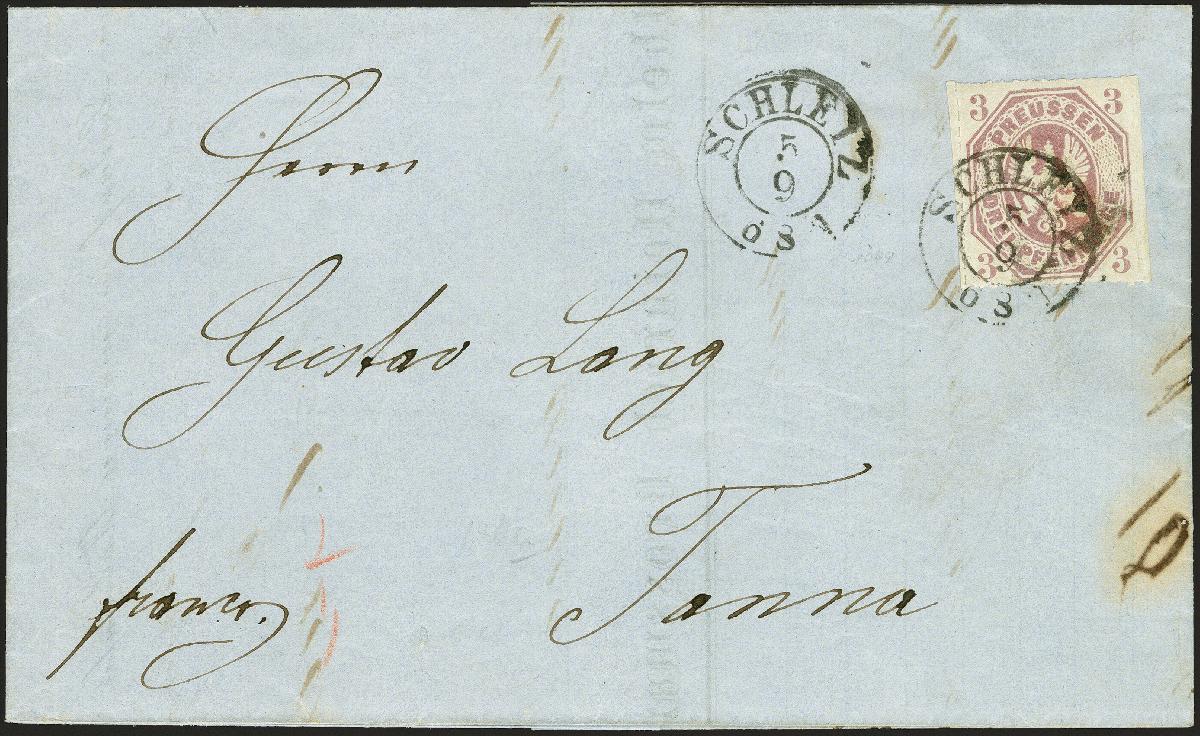 SCHLEIZ
5
9
68
3 3
PREUSSEN
DREI PFENNIGE
3 3
SCHLEIZ
5
9
68
Herrn
Gustav Lang
Tanna
franco.